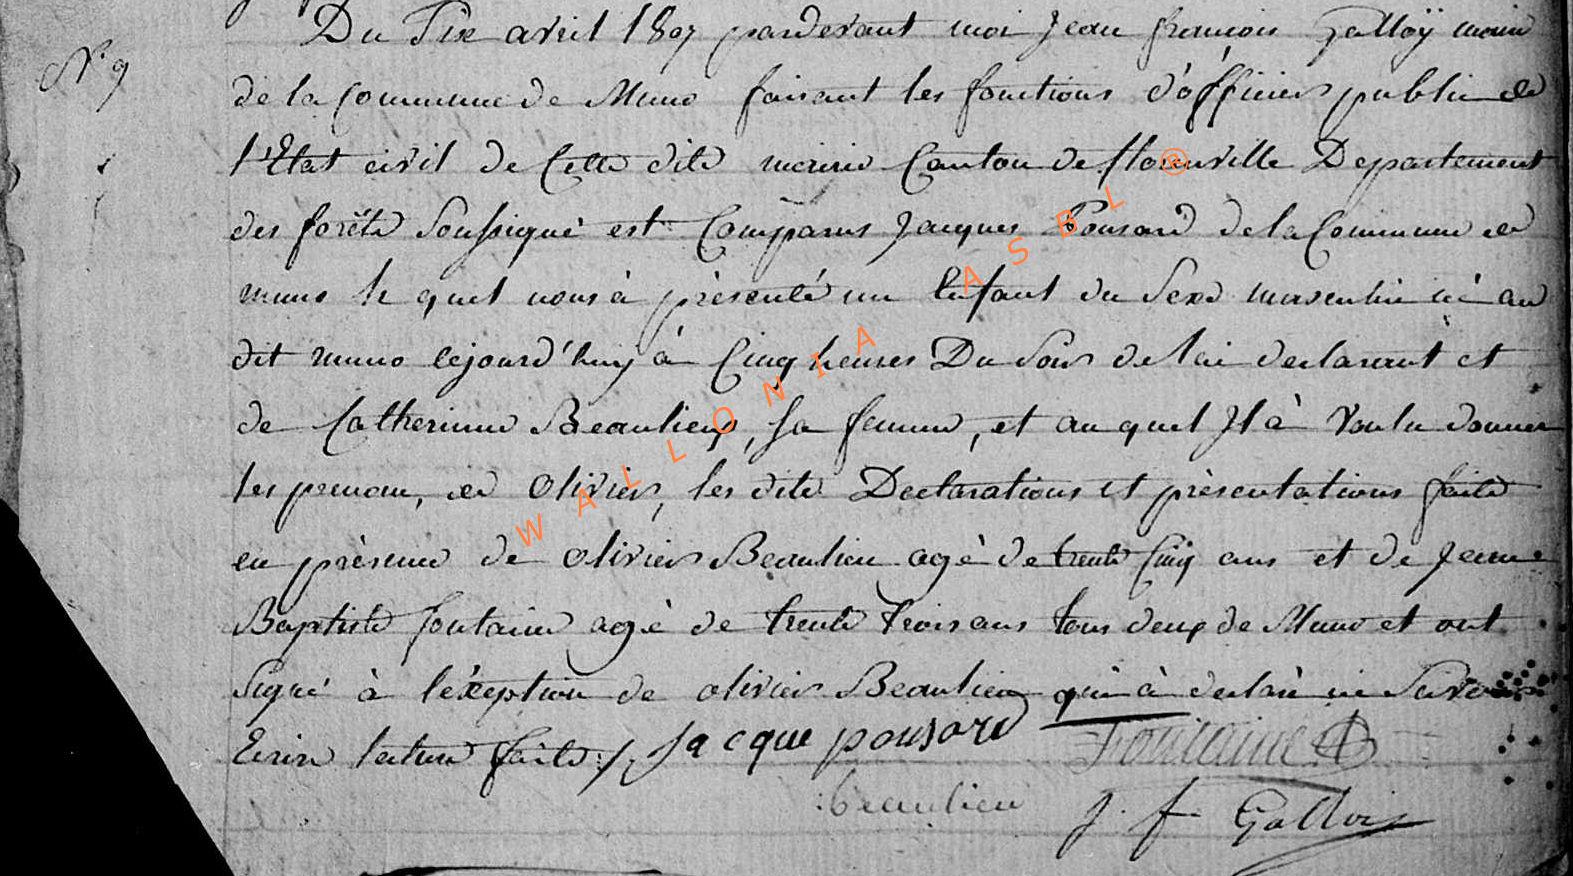 Du Six avril 1807 pardevant moi Jean françois Galloÿ maire
N.° 9
de la Commune de Muno faisant les fonctions d'òfficier public de
l'Etat civil de Cette dite mairie Canton de florenville Departement
des forêts Soussigné est Comparus Jacques Ponsard de la Commune de
muno le quel nous à présenté un Enfant du Sexe masculin né au
dit muno cejourd'huy à Cinq heures Du Soir de lui declarant et
de Catherinne Beaulieux, sa femme, et au quel Il à Voulu donner
les prenom, de Olivier, les dite Declarations et présentations faite
en présence de olivier Beaulieu agé de trente Cinq ans et de Jeanne
Baptiste fontaine agé de trente trois ans tous deux de Muno et ont
Signé à l'éxeption de olivier Beaulieu qui à declaré ne Savoir
Ecrire lecture faite ./. Jacque ponsard Fontaine
beaulieu J. f Gallois
WALLONIA ASBL ®